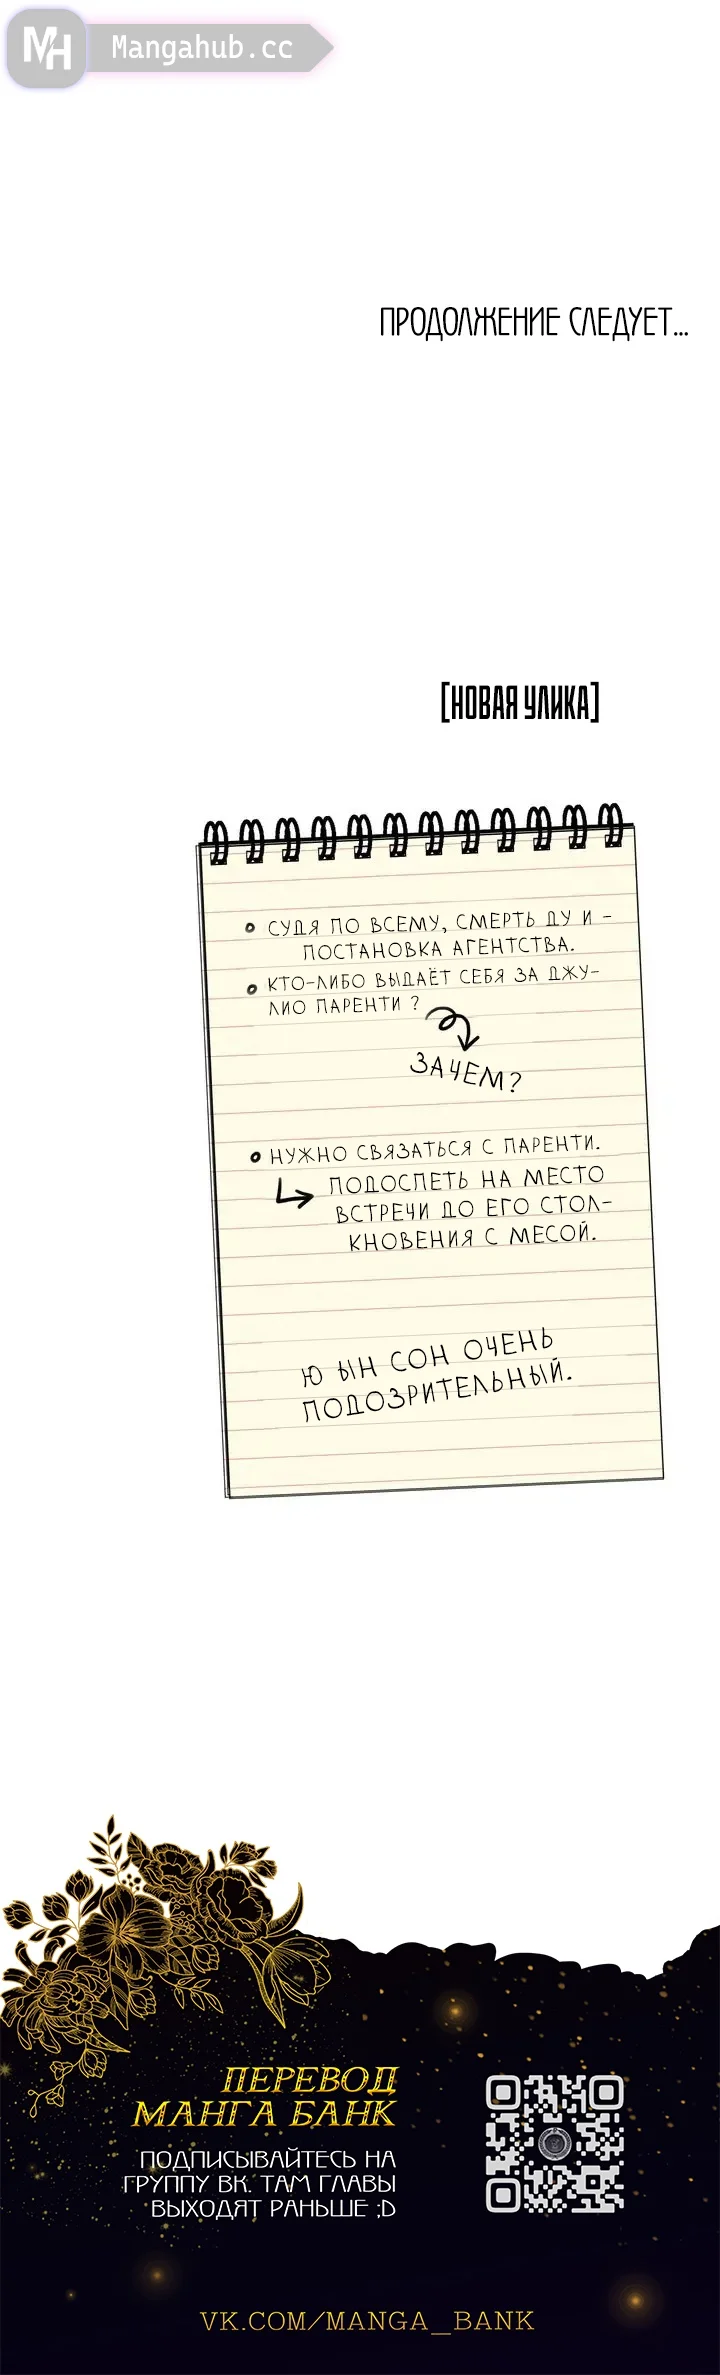 MH Mangahub.cc
ПРОДОЛЖЕНИЕ СЛЕДУЕТ...
[НОВАЯ УЛИКА]
СУДЯ ПО ВСЕМУ, СМЕРТЬ ДУ И -
ПОСТАНОВКА АГЕНТСТВА.
КТО-ЛИБО ВЫДАЁТ СЕБЯ ЗА ДЖУ-
ЛИО ПАРЕНТИ ?
ЗАЧЕМ?
НУЖНО СВЯЗАТЬСЯ С ПАРЕНТИ.
ПОДОСПЕТЬ НА МЕСТО
ВСТРЕЧИ ДО ЕГО СТОЛ-
КНОВЕНИЯ С МЕСОЙ.
Ю ЫН СОН ОЧЕНЬ
ПОДОЗРИТЕЛЬНЫЙ.
ПЕРЕВОД
МАНГА БАНК
ПОДПИСЫВАЙТЕСЬ НА
ГРУППУ ВК. ТАМ ГЛАВЫ
ВЫХОДЯТ РАНЬШЕ ;D
VK.COM/MANGA_BANK